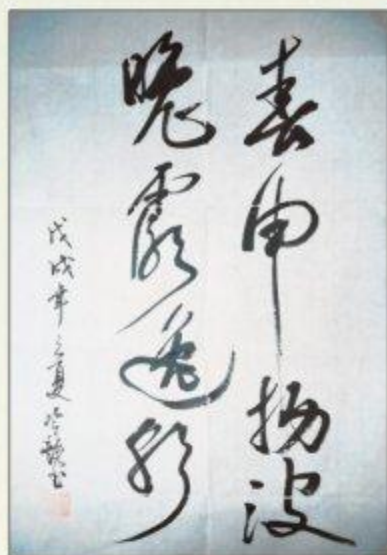 春申扬波
晚霞逸彩
戊戌年之夏